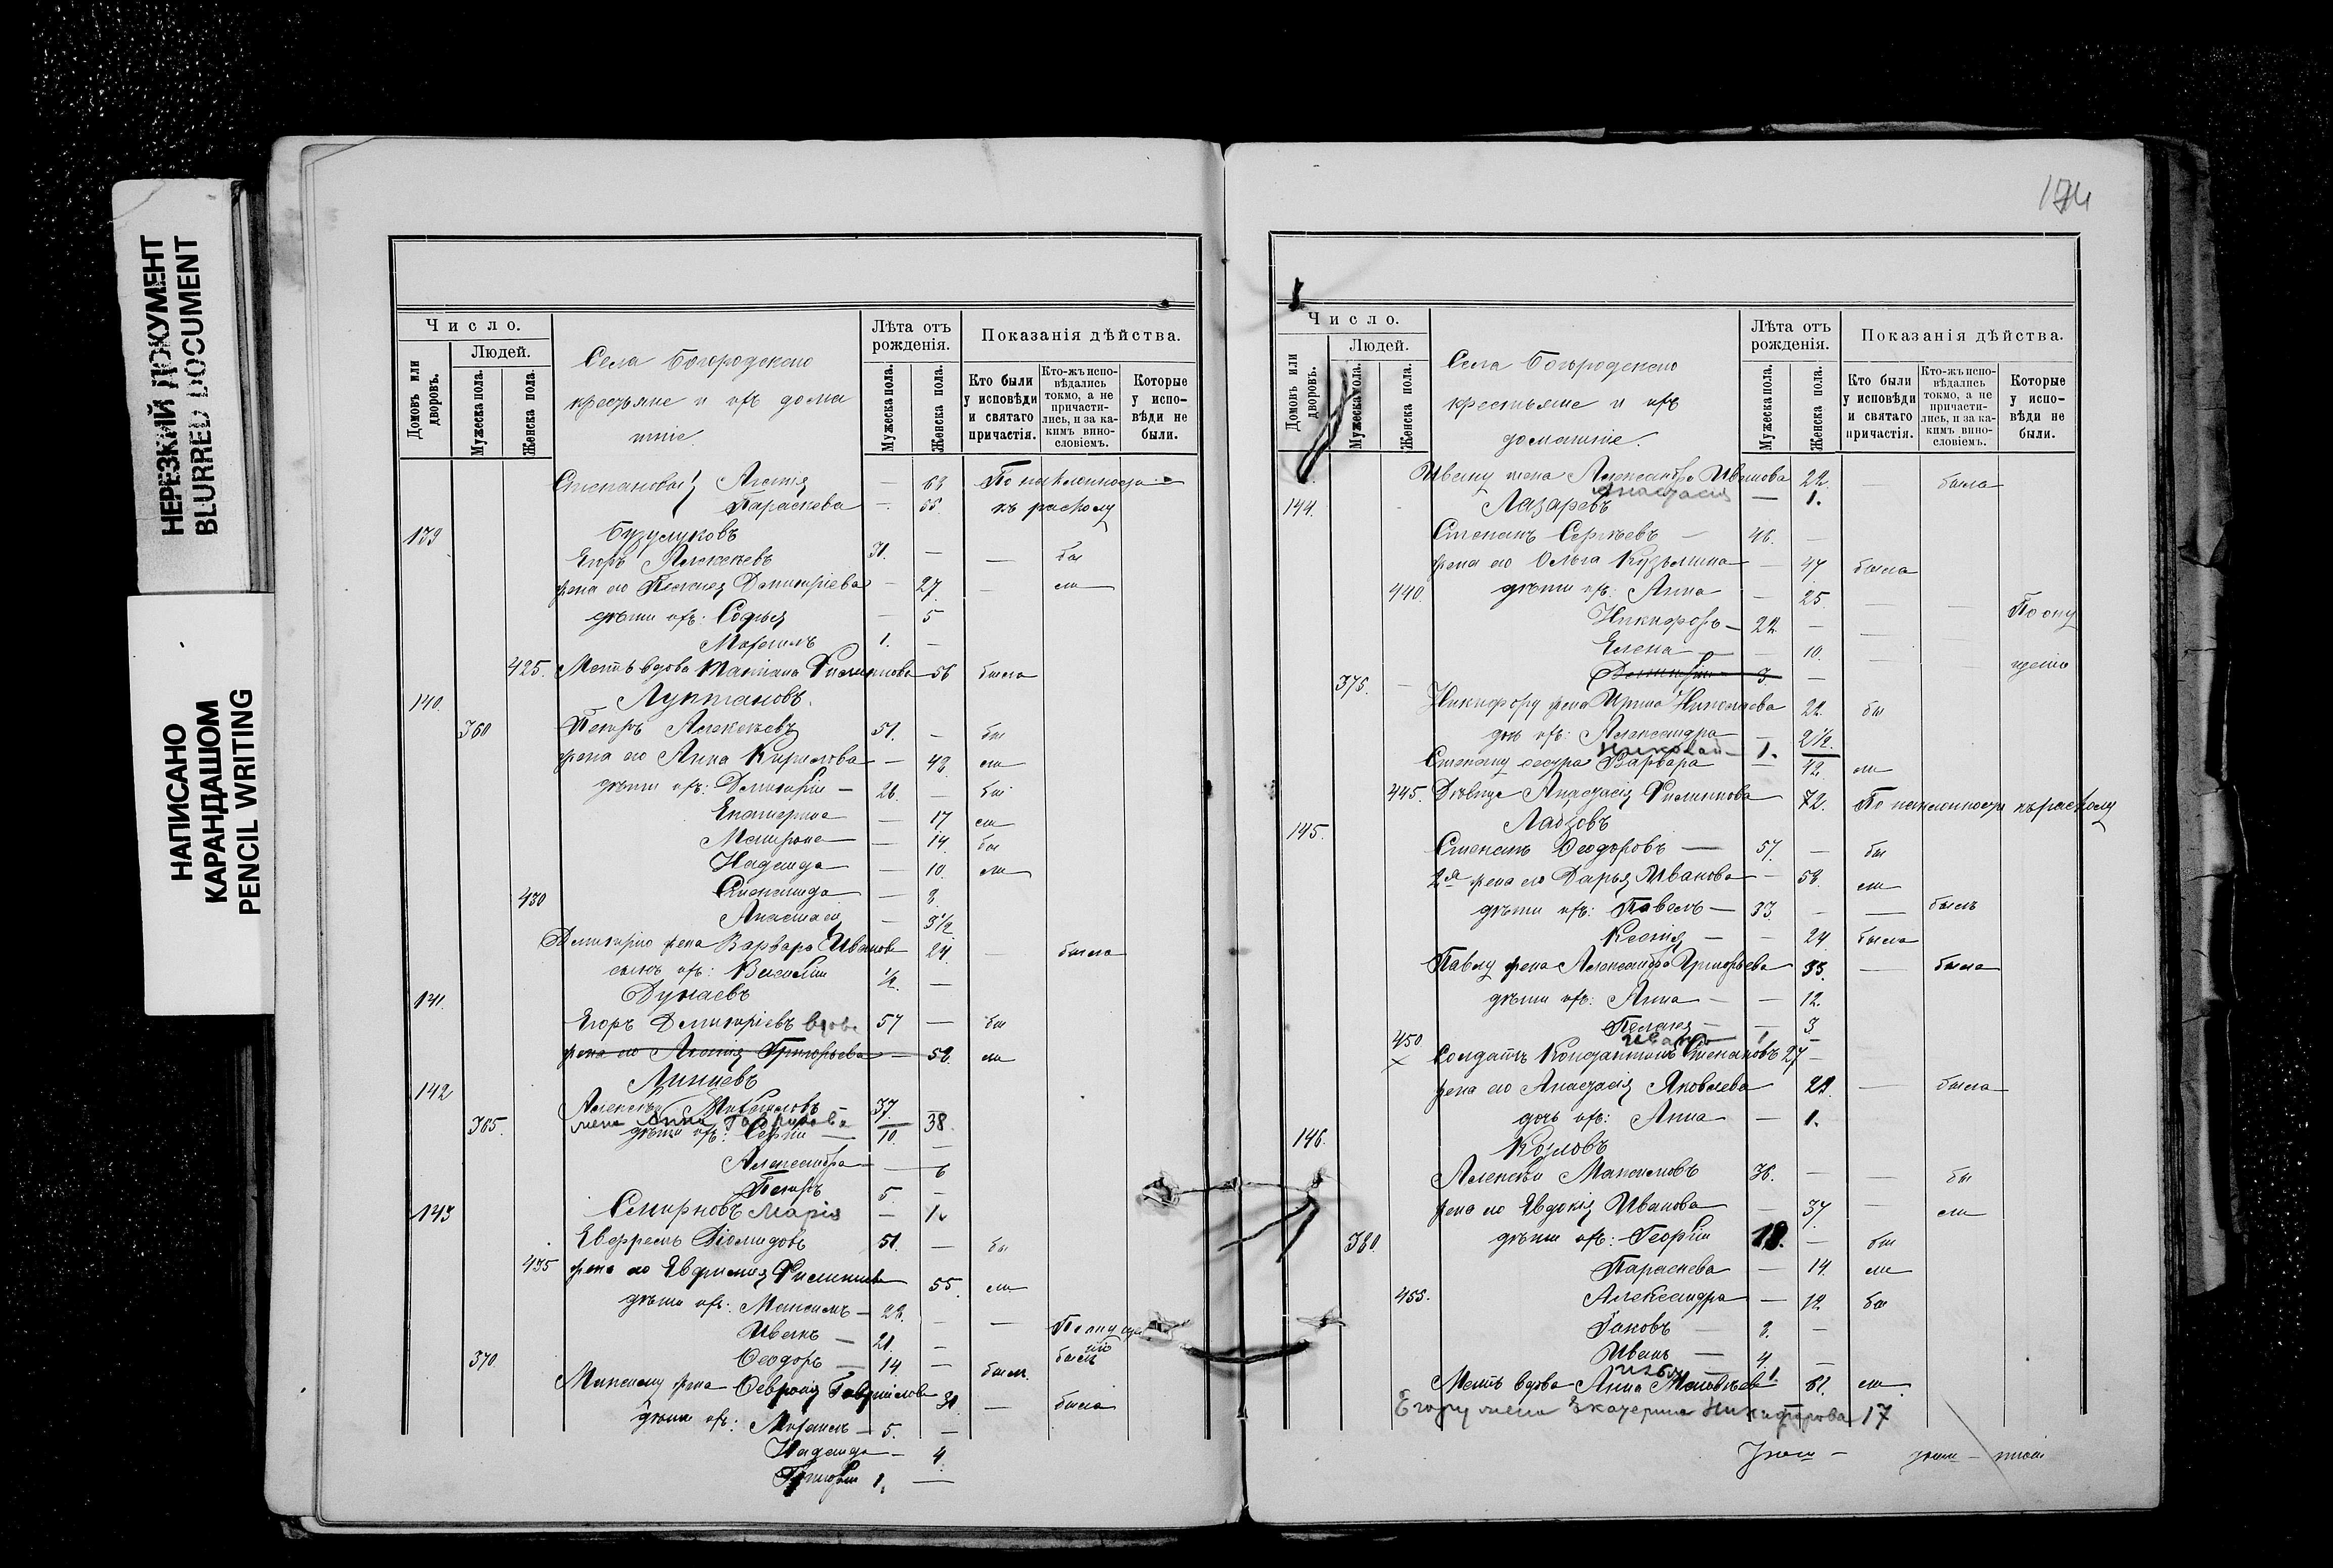 НЕРЕЗКИЙ ДОКУМЕНТ
BLURRED DOCUMENT
НАПИСАНО
КАРАНДАШОМ
PENCIL WRITING
Число.
Людей.
Домовъ или дворовъ.
Мужеска пола.
Женска пола.
Села Богородского
крестьяне и ихъ дома
шніе.
Лѣта отъ рожденія.
Мужеска пола.
Женска пола.
Показанія дѣйства.
Кто были у исповѣди и святаго причастія.
Кто-жъ исповѣдались токмо, а не причастились, и за какимъ винословіемъ.
Которые у исповѣди не были.
Степановы Агафія — 63 По наклонности
Параскева — 55. къ расколу
139 Бузулуковъ
Егоръ Алексѣевъ 31. — — бы
жена его Пелагія Димитріева — 27. — ла
дѣти ихъ: Софья — 5
Михаилъ 1. —
425. Мать вдова Татіана Филиппова 56 была
140.
360 Петръ Алексѣевъ 51. — бы
жена его Анна Кирилова — 48. ла
дѣти ихъ: Димитрій — 26. — бы
Екатерина — 17 ла
Матрона — 14. бы
Надежда — 10. ла
430 — 8.
Анастасія — 3½
Димитрію жена Варвара Иванова 24 — была
сынъ ихъ: Василій ½. —
141. Дунаевъ
Егоръ Димитріевъ вдовъ 57 — бы
жена его Агафія Григорьева — 58. ла
142
Алексѣй Михаиловъ 37. —
жена Анна Гаврилова 38.
365. дѣти ихъ: Сергій — 10. —
Александра — 6
Петръ 5. —
143 Смирновъ Марія — 1.
Евфремъ Діомидовъ 51. — бы
435 жена его Евфимія Филиппова 55. ла
дѣти ихъ: Максимъ — 28. — —
Иванъ — 21. —
370. Ѳеодоръ — 14 — былъ
Максиму жена Ѳеврогія Гаврилова 31. — была
дѣти ихъ: Михаилъ — 5. —
Надежда — 4.
Григорій 1. —
174
Число.
Людей.
Домовъ или дворовъ.
Мужеска пола.
Женска пола.
Села Богородского
крестьяне и ихъ
домашніе.
Лѣта отъ рожденія.
Мужеска пола.
Женска пола.
Показанія дѣйства.
Кто были у исповѣди и святаго причастія.
Кто-жъ исповѣдались токмо, а не причастились, и за какимъ винословіемъ.
Которые у исповѣди не были.
Ивану жена Александра Иванова 22. — была
Анастасія — 1.
144. Лазаревъ
Степанъ Сергѣевъ — 46. —
жена его Ольга Кузьмина — 47 была
440. дѣти ихъ: Анна — 25. — — По опу
Никифоръ — 22. — —
Елена — — 10. — щенію
Димитрій 3. —
375. Никифору жена Ирина Николаева 22. бы
дочь ихъ: Александра — 2½.
Николай — 1.
Степану сестра Варвара — 42. ла
445. Дѣвица Анастасія Филиппова 72. По наклонности къ расколу
145.
Степанъ Ѳеодоровъ — 57. — бы
2я жена его Дарья Иванова — 58. ла
дѣти ихъ: Павелъ — 33. — — былъ
Ксенія — — 24 была
Павлу жена Александра Григорьева 33. — была
дѣти ихъ: Анна — — 12.
450 Пелагія — — 3.
Иванъ 1 —
× Солдатъ Константинъ Степановъ 27 —
жена его Анастасія Яковлева 22. — была
дочь ихъ: Анна — 1.
146. Козловъ
Алексѣй Максимовъ 36. — — бы
жена его Евдокія Иванова — 37. — ла
380. дѣти ихъ: Георгій 18. — бы
Параскева — 14. ла
455. Александра — 12 бы
Іаковъ — 8. —
Иванъ — 4. —
1.
Мать вдова Анна Матвѣева 61. ла
Егору жена Екатерина Никифорова 17